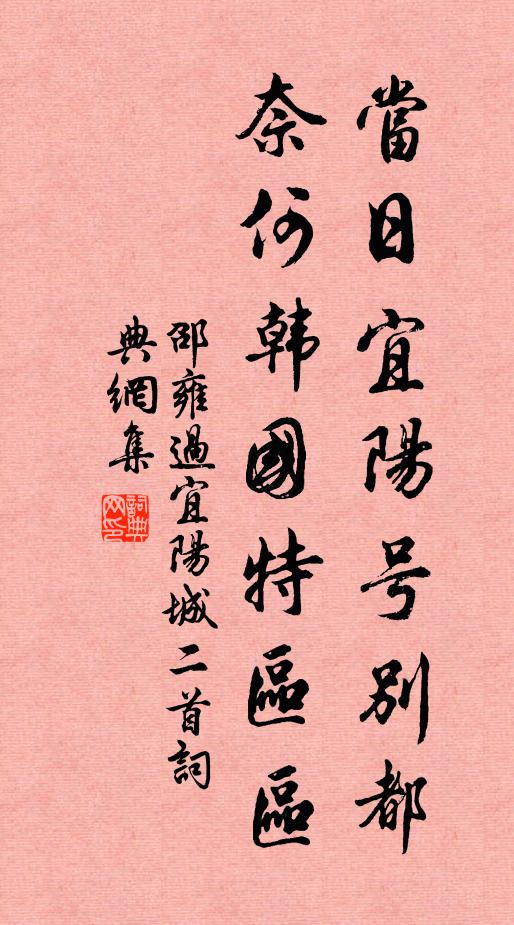 當日宜陽号別都
奈何韓國特區區
邵雍過宜陽城二首詞
典網集
詞典
网印